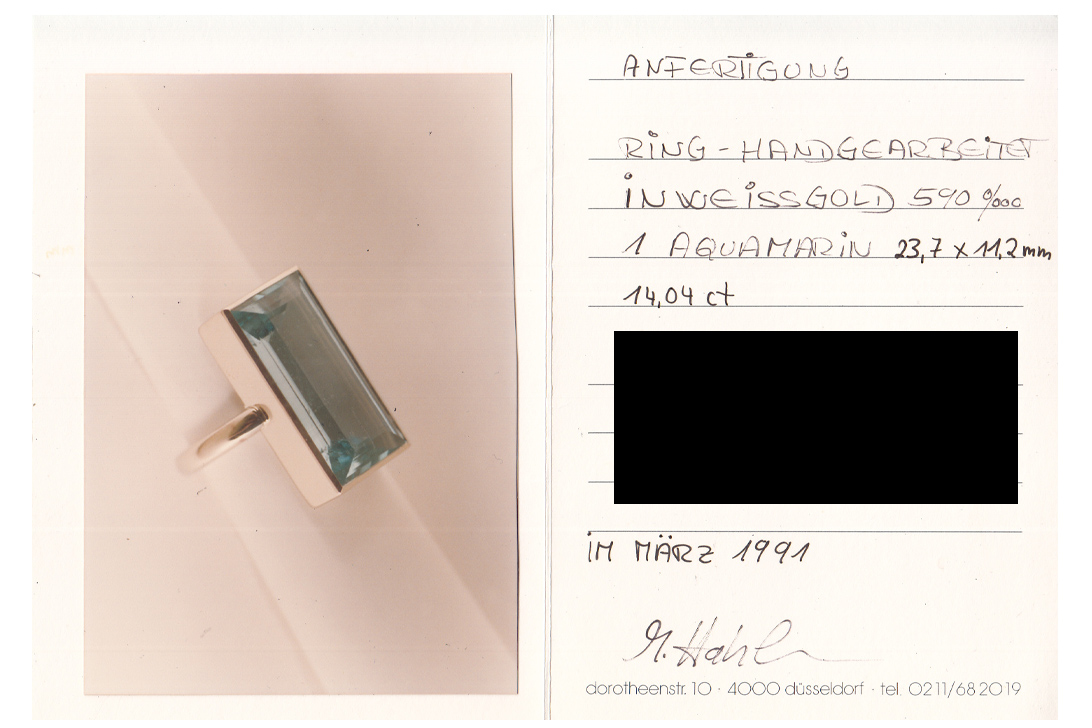 ANFERTIGUNG
RING - HANDGEARBEITET
IN WEISSGOLD 590 %oo
1 AQUAMARIN 23,7 x 11,2 mm
14,04 ct
IM MÄRZ 1991
dorotheenstr. 10 · 4000 düsseldorf · tel. 0211/682019